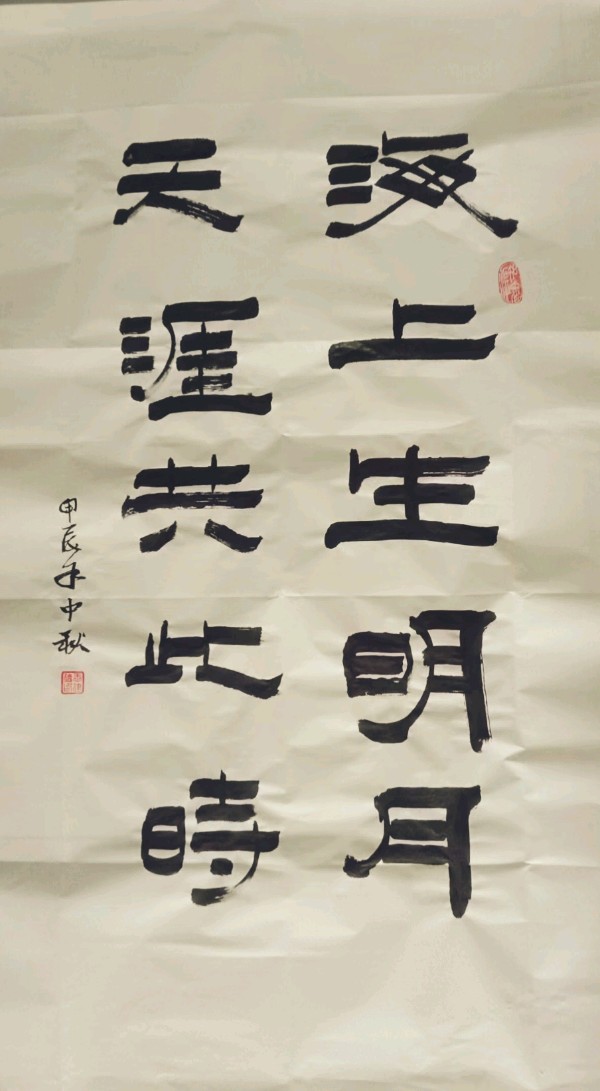 海上生明月
天涯共此時
甲辰年中秋